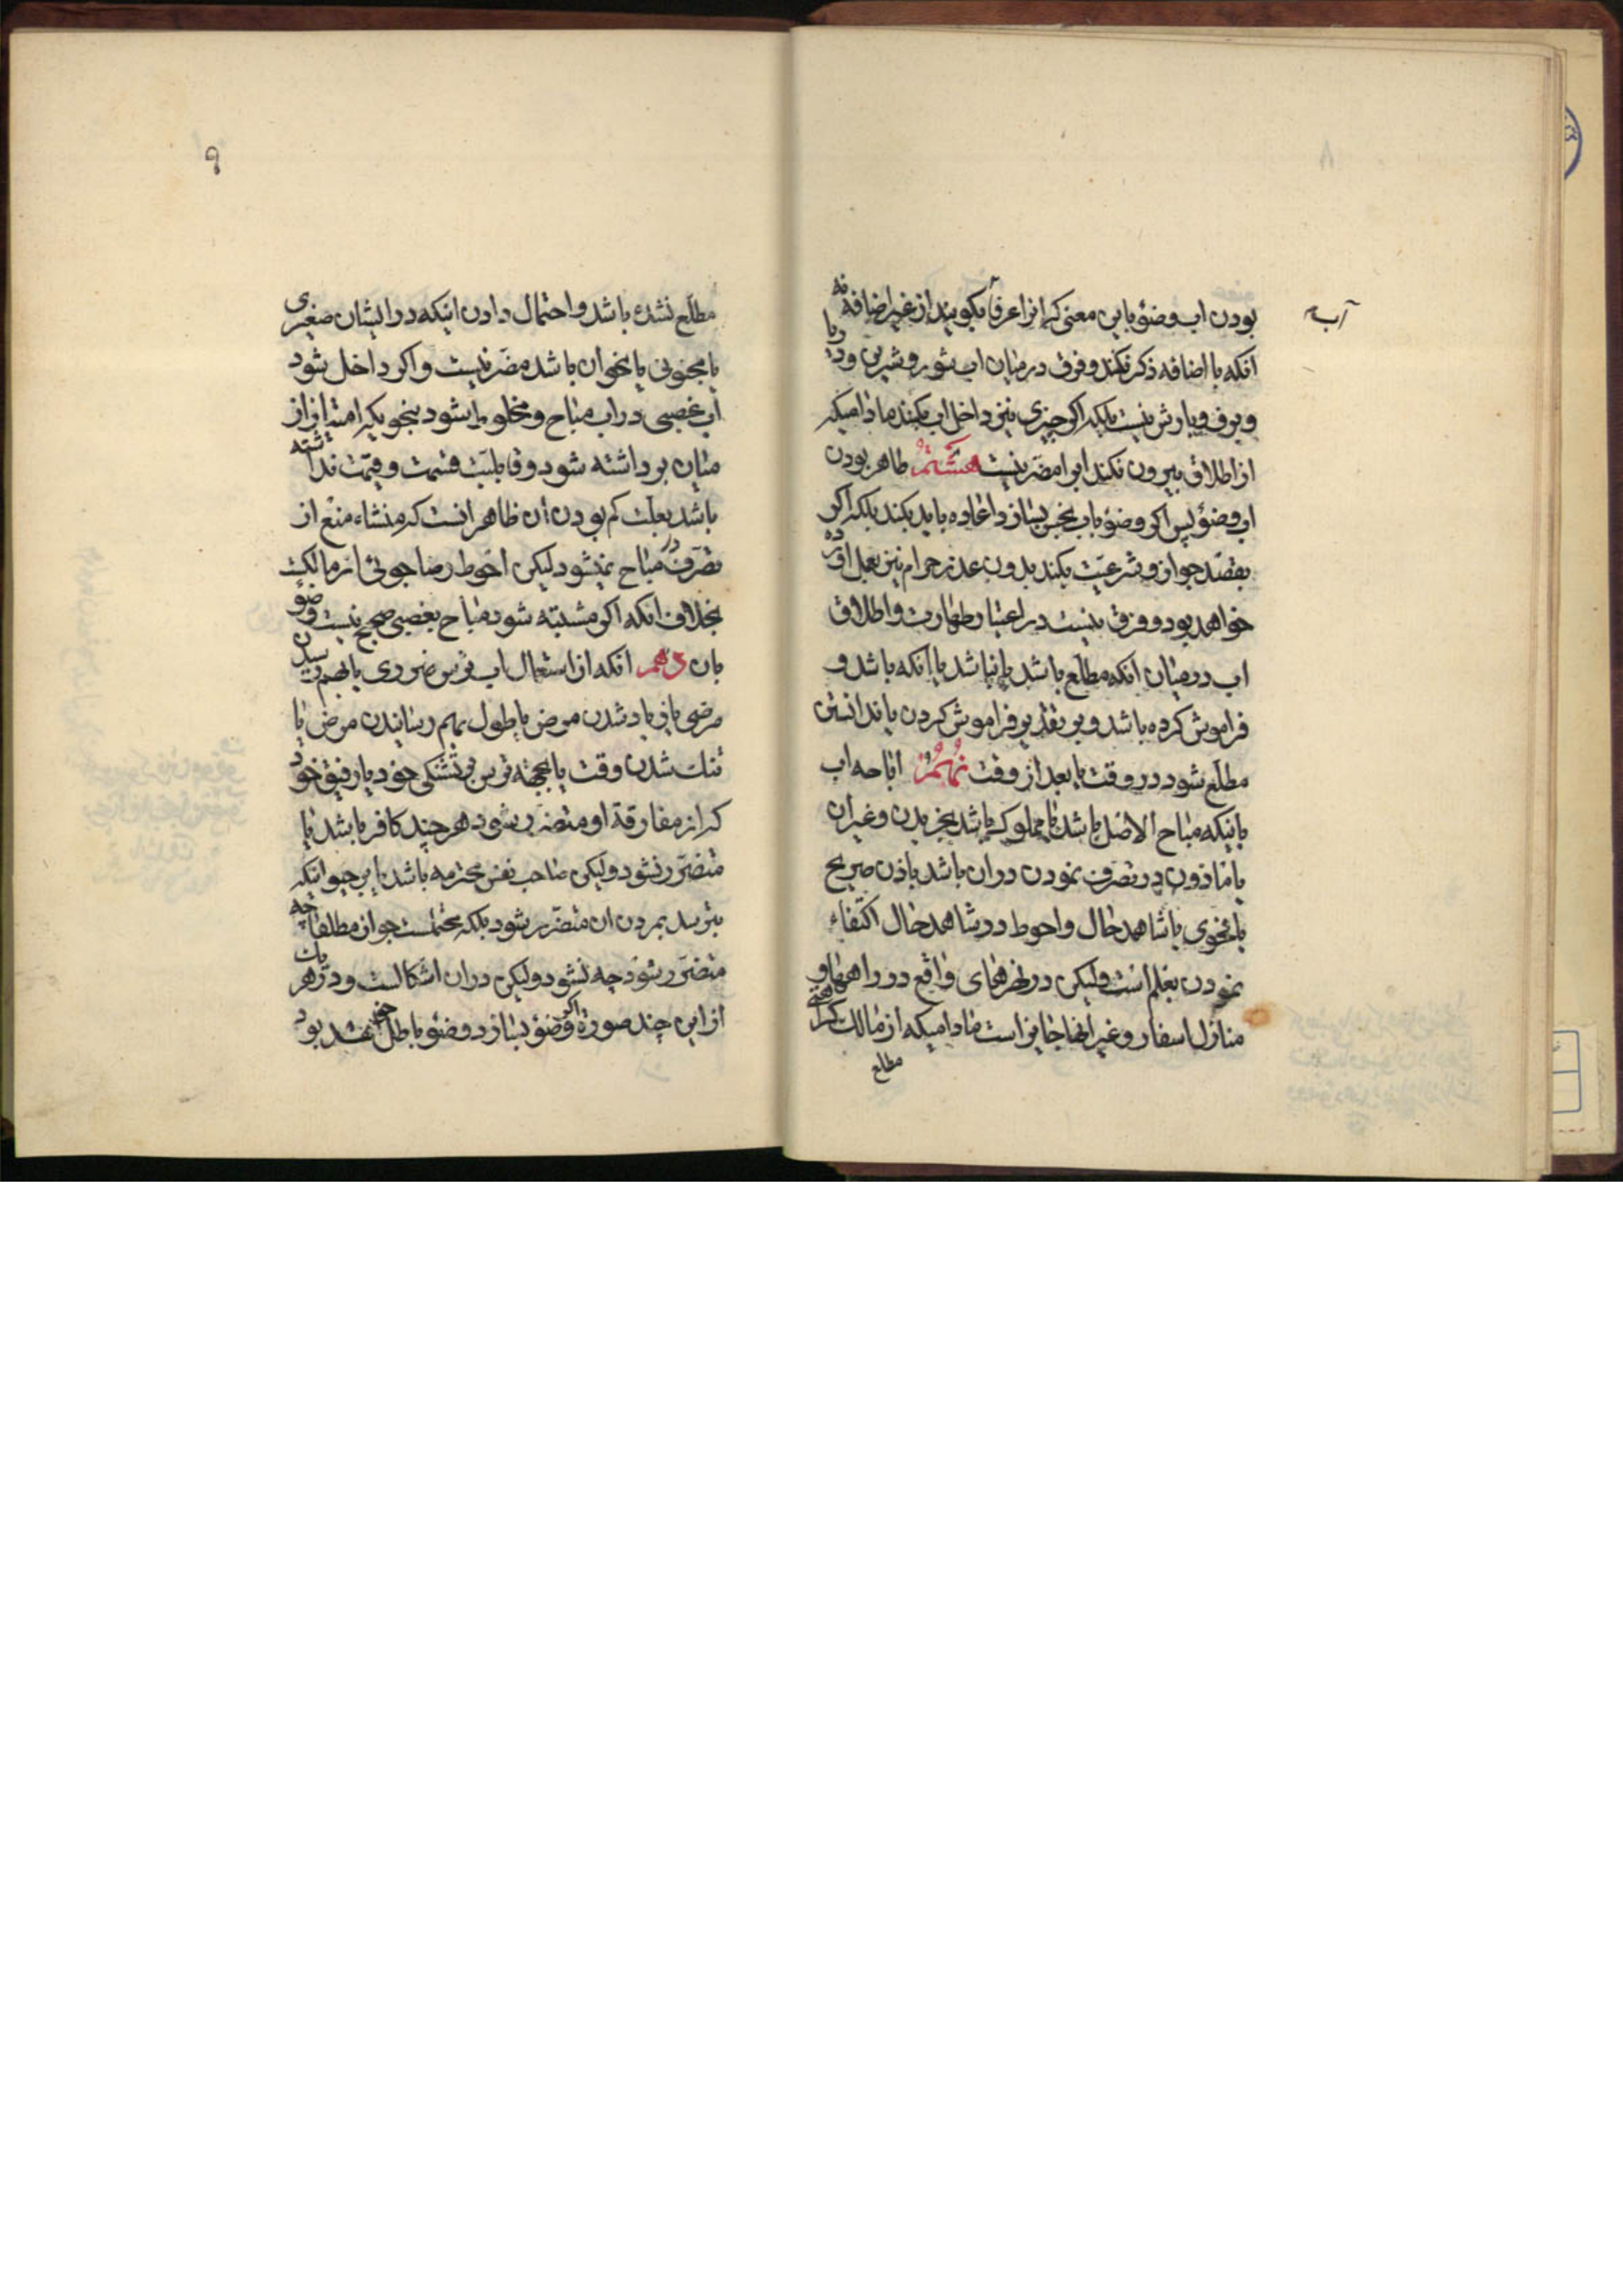 ۸
آب
بودن اب وضوٴ باین معنی که انرا عرفاً بگویند از غیر اضافه نه
انکه با اضافه ذکر نکند و فرق در میان اب شور و شیرین و دریا
و برف و بارش نیست بلکه اکر چیزی نیز داخل اب بکنند مادامیکه
از اطلاق بیرون نکند انرا مضر نیست هشتم طاهر بودن
اب وضوٴ پس اکر وضوٴ باب نجس بسازد اعاده باید بکند بلکه اکر
بقصد جواز و شرعیّت بکند بدون عذر حرام نیز بعمل اورده
خواهد بود و فرق نیست در اعتبار طهارت و اطلاق
اب در میان انکه مطلّع باشد یا نباشد یا انکه باشد و
فراموش کرده باشد و بر تقدیر فراموش کردن یا ندانستن
مطلّع شود در وقت یا بعد از وقت نهم اباحه اب
باینکه مباح الاصل باشد یا مملوک باشد بخریدن و غیر ان
یا ماذون در تصرف نمودن در ان باشد باذن صریح
یا فحوی یا شاهد حال و احوط در شاهد حال اکتفاء
نمودن بعلم است ولیکن در نهرهای واقع در راهها و
منازل اسفار و غیر انها جایز است مادامیکه از مالک کراهتی
مطلع
۹
مطلّع نشده باشد و احتمال دادن اینکه در ایشان صغیری
یا مجنونی یا نحو ان باشد مضرّ نیست و اکر داخل شود
اب غصبی در اب مباح و مخلوط شود بنحویکه امتیاز از
میان برداشته شود و قابلیّت قسمت و قیمت نداشته
باشد بعلّت کم بودن ان ظاهر انست که منشاء منع از
تصرّف در مباح نمیشود لیکن احوط رضاجوئی از مالکست
بخلاف انکه اکر مشتبه شود مباح بغصبی صحیح نیست وضوٴ
بان دهم انکه از استعمال اب ترس ضروری یا بهم رسیدن
مرضی یا زیاد شدن مرض یا طول بهم رسانیدن مرض یا
تنک شدن وقت یا بجهة ترس تشنکی خود یا رفیق خود
که از مفارقة او متضرّر بشود هر چند کافر باشد یا
متضرّر نشود ولیکن صاحب نفس محترمه باشد یا بر حیوانیکه
بترسد بمردن ان متضرّر بشود بلکه محتملست جواز مطلقا چه
متضرّر بشود چه نشود ولیکن در ان اشکالست و در هر یک
از این چند صورة اکر وضوٴ بسازد وضوٴ باطل خواهد بود